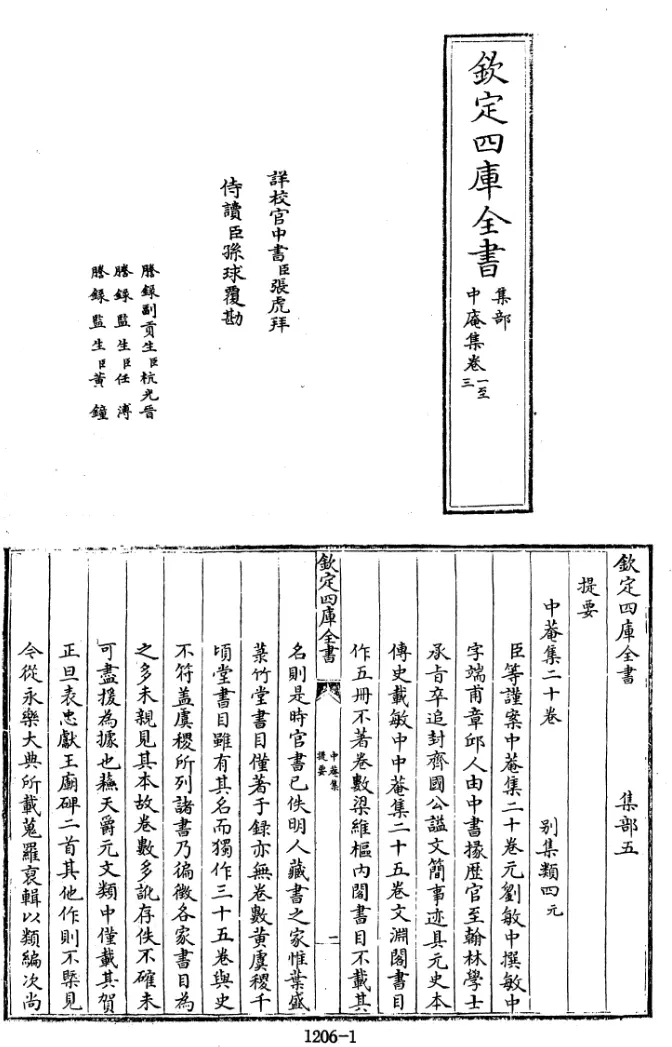 欽定四庫全書
集部
中庵集卷一至三
詳校官中書臣張虎拜
侍讀臣孫球覆勘
謄錄副貢生臣杭光晉
謄錄監生臣任溥
謄錄監生臣黃鐘
欽定四庫全書 集部五
提要
中菴集二十卷 别集類四元
臣等謹案中菴集二十卷元劉敏中撰敏中
字端甫章邱人由中書掾歷官至翰林學士
承㫖卒追封齊國公諡文簡事迹具元史本
傳史載敏中中菴集二十五卷文淵閣書目
作五冊不著卷數梁維樞内閣書目不載其
欽定四庫全書
中庵集
提要
一
名則是時官書已佚明人藏書之家惟葉盛
菉竹堂書目僅著于録亦無卷數黄虞稷千
頃堂書目雖有其名而獨作三十五卷與史
不符盖虞稷所列諸書乃徧徵各家書目為
之多未親見其本故卷數多訛存佚不確未
可盡援為據也蘓天爵元文類中僅載其賀
正旦表忠獻王廟碑二首其他作則不槩見
今從永樂大典所載蒐羅裒輯以類編次尚
1206-1